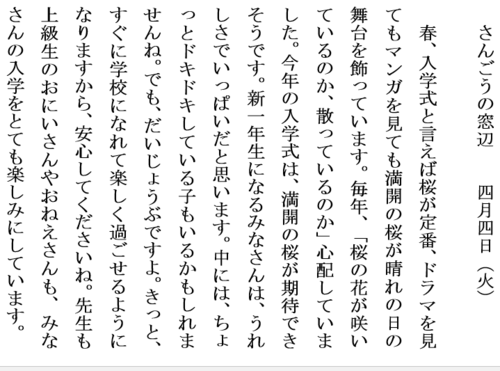 さんごうの窓辺　　四月四日（火）
　春、入学式と言えば桜が定番、ドラマを見
てもマンガを見ても満開の桜が晴れの日の
舞台を飾っています。毎年、「桜の花が咲い
ているのか、散っているのか」心配していま
した。今年の入学式は、満開の桜が期待でき
そうです。新一年生になるみなさんは、うれ
しさでいっぱいだと思います。中には、ちょ
っとドキドキしている子もいるかもしれま
せんね。でも、だいじょうぶですよ。きっと、
すぐに学校になれて楽しく過ごせるように
なりますから、安心してくださいね。先生も
上級生のおにいさんやおねえさんも、みな
さんの入学をとても楽しみにしています。